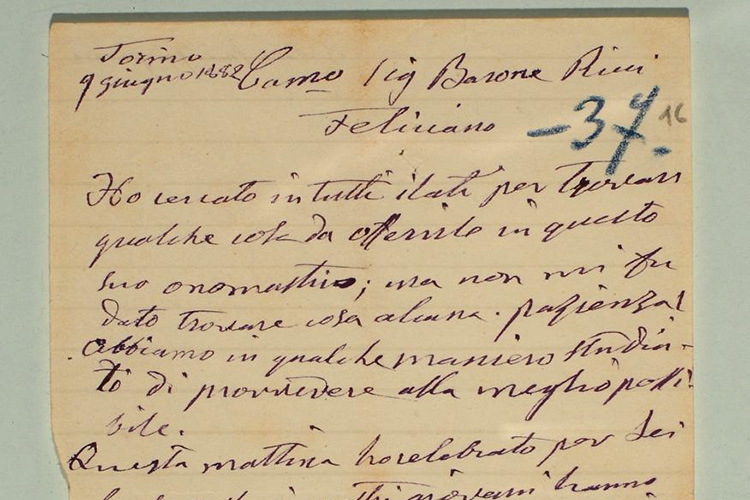 Torino
9 giugno 1882 Carmo Sig Barone Ricci
Feliciano
- 37. 16
Ho cercato in tutti i lati per trovar
qualche cosa da offerirle in questo
suo onomastico; ma non mi fu
dato trovare cosa alcuna. pazienza!
Abbiamo in qualche maniera studia-
to di provvedere alla meglio possi
bile.
Questa mattina ho celebrato per Lei
giovani hanno